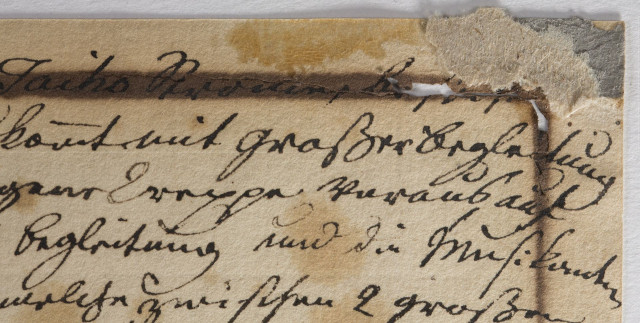 Taiko
kom̄t mit großer begleitung
Treppe voraus auf
begleitung und die Musikanten
welche zwischen 2 großen